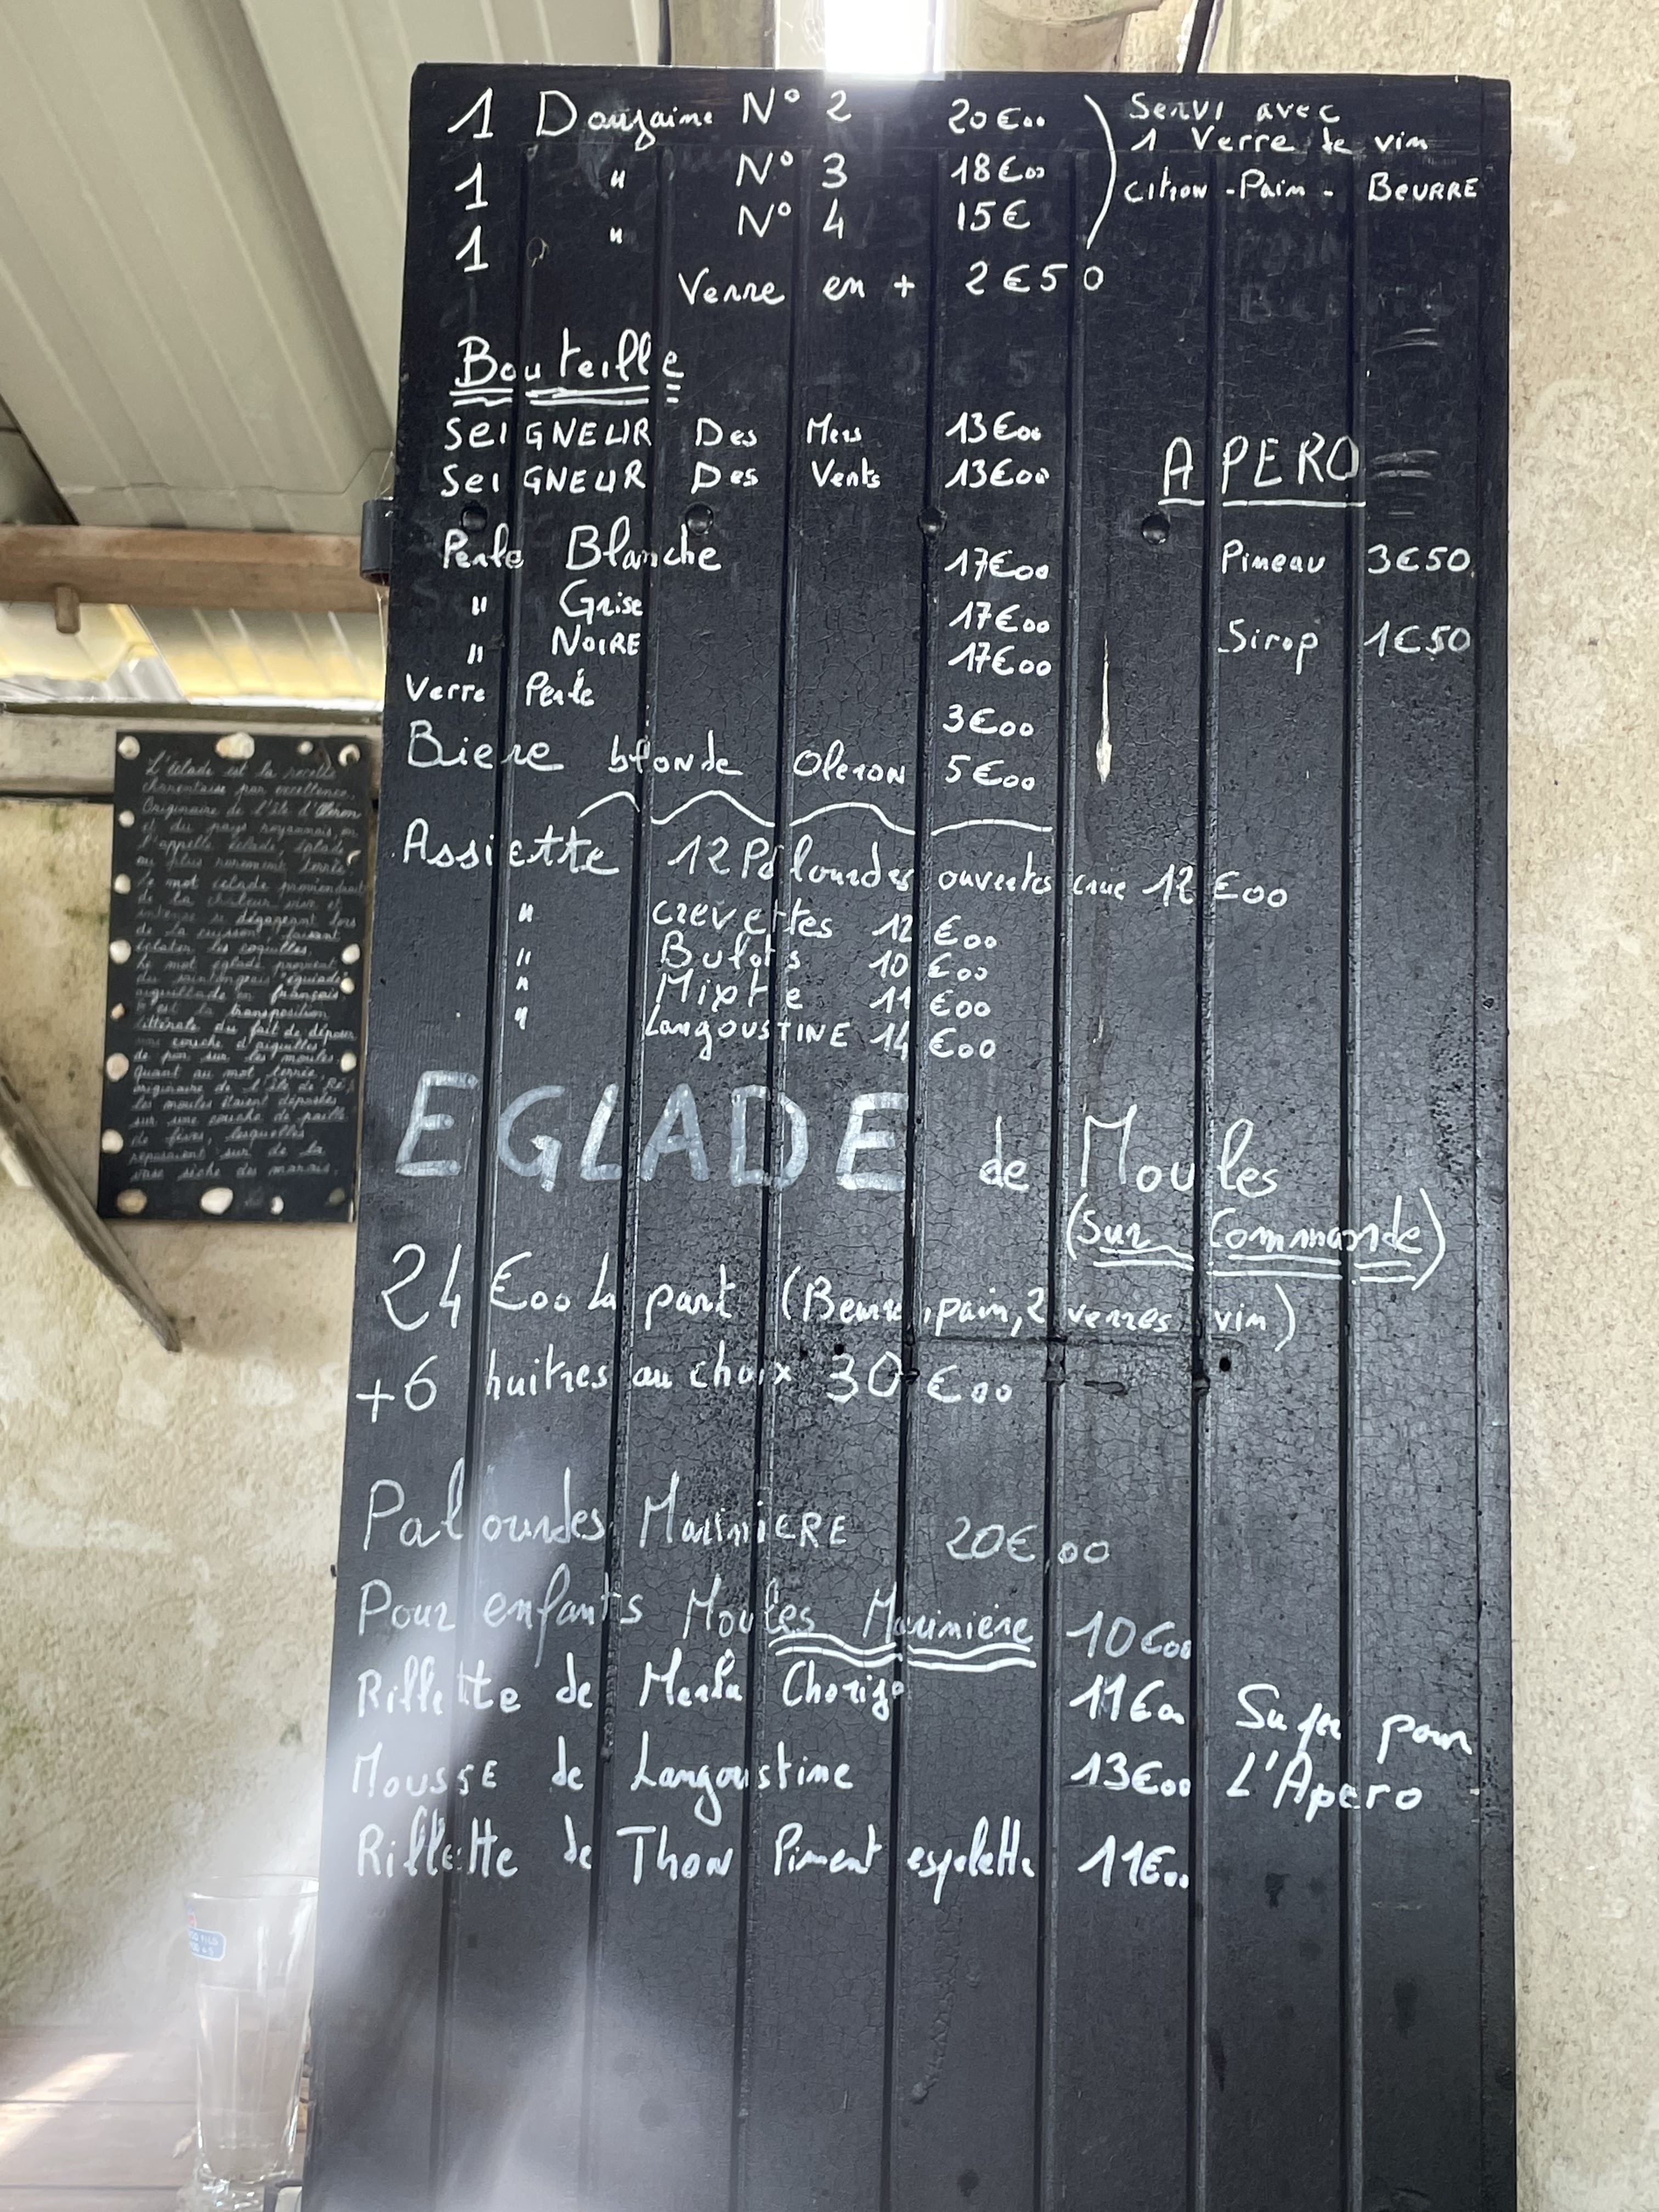 1 Douzaine N° 2 20€00
1 " N° 3 18€00
1 " N° 4 15€
Servi avec
1 Verre de vin
Citron - Pain - BEURRE
Verre en + 2€50
Bouteille
SEIGNEUR Des Mers 13€00
SEIGNEUR Des Vents 13€00
APERO
Perle Blanche 17€00
" Grise 17€00
" NOIRE 17€00
Verre Perle 3€00
Pineau 3€50
Sirop 1€50
Biere blonde Oleron 5€00
Assiette 12 Palourdes ouvertes crue 12€00
" crevettes 12€00
" Bulots 10€00
" Mixte 11€00
" LangousTINE 14€00
EGLADE de Moules
(Sur Commande)
24€00 la part (Beurre, pain, 2 verres vin)
+6 huitres au choix 30€00
Palourdes MariniERE 20€,00
Pour enfants Moules Marinière 10€00
Rillette de Merlu Chorizo 11€00
Mousse de Langoustine 13€00
Super pour
L'Apero
Rillette de Thon Piment espelette 11€00
L'éclade est la recette
charentaise par excellence.
Originaire de l'île d'Oléron
et du pays royannais, on
l'appelle éclade, églade
ou plus rarement terrée
Le mot éclade proviendrait
de la chaleur vive et
intense se dégageant lors
de la cuisson, faisant
éclater les coquilles.
Le mot églade provient
du saintongeais
aiguillade en français
C'est la transposition
littérale du fait de déposer
une couche d'aiguilles
de pin sur les moules
Quant au mot terrée,
originaire de l'île de Ré,
les moules étaient déposées
sur une couche de paille
de fèves, lesquelles
reposaient sur de la
vase sèche des marais.